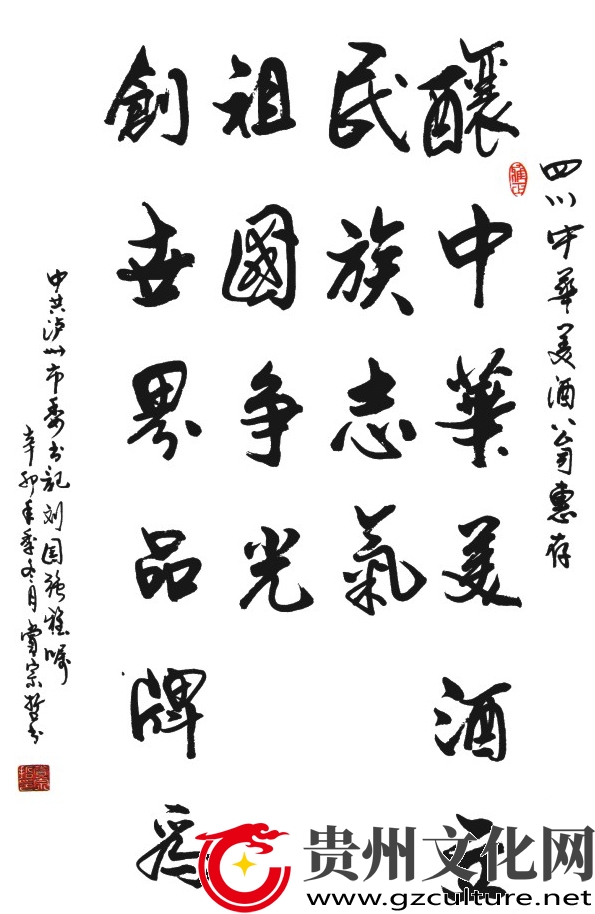 四川中華美酒公司惠存
釀中華美酒
民族志氣
創世界品牌爲
祖國争光
中共泸州市委书記刘国强雅嘱
辛卯年季冬月宗哲书
贵州文化网
www.gzculture.net